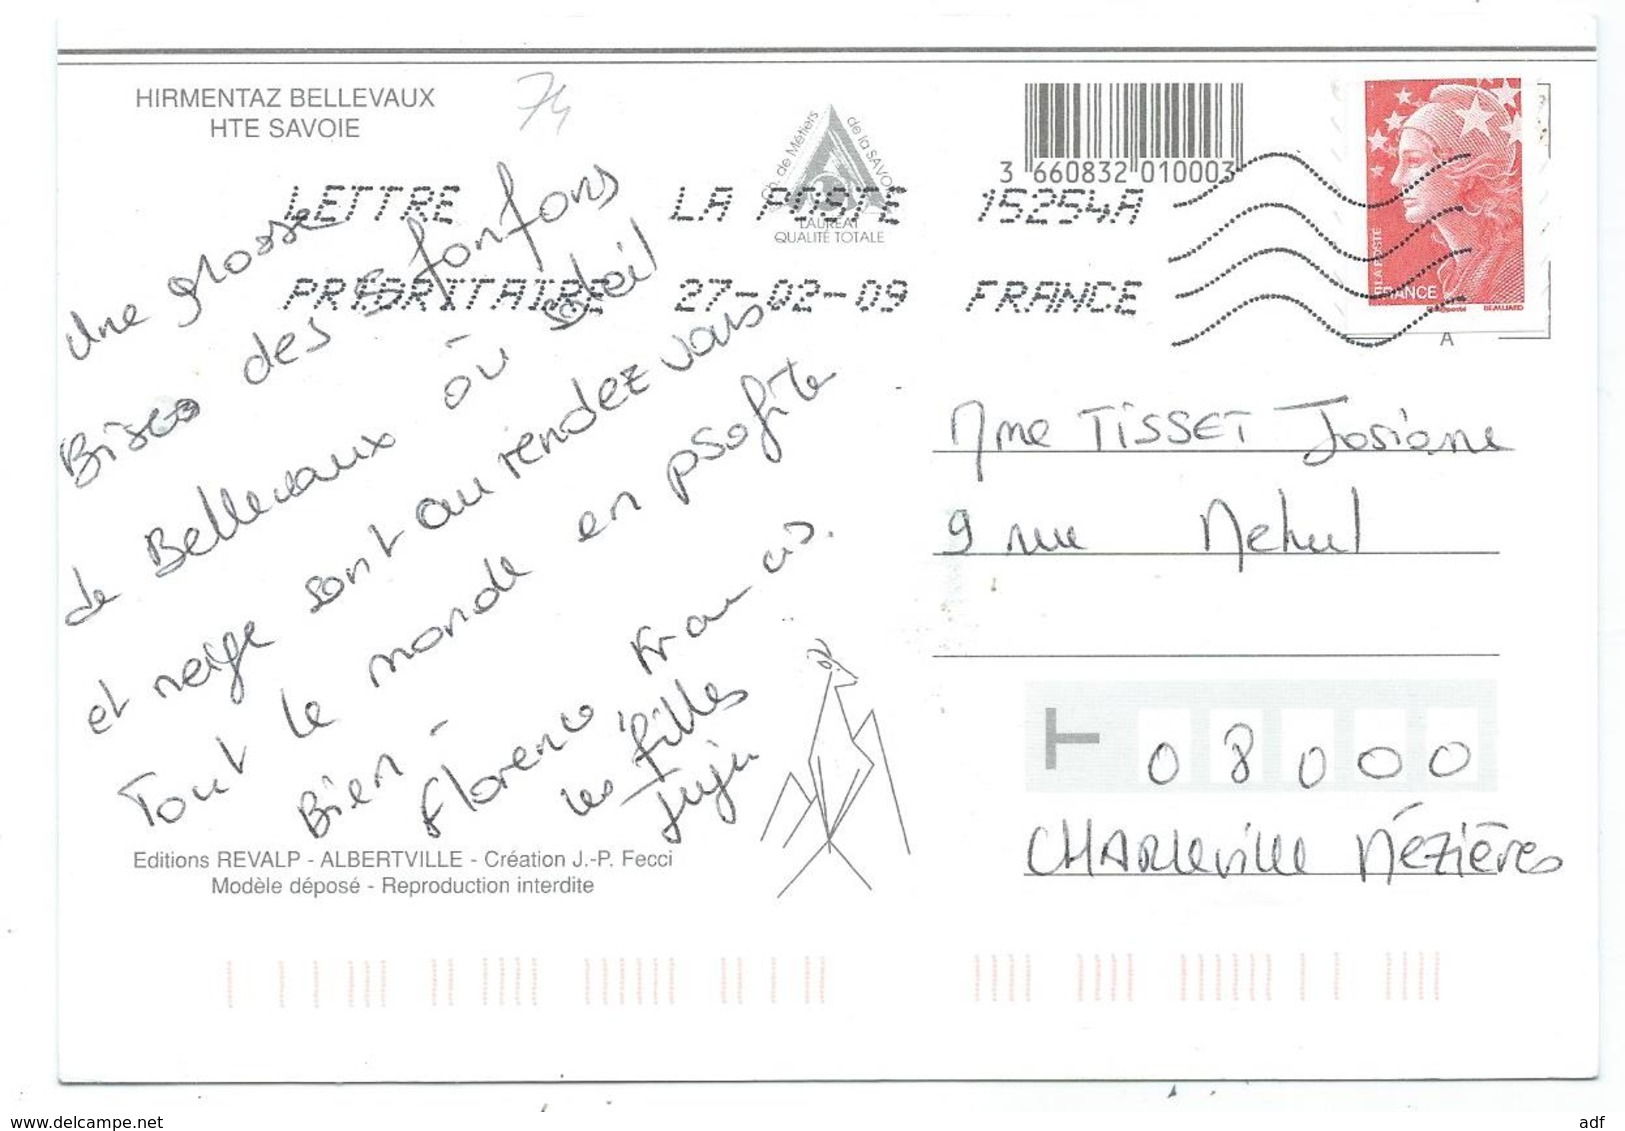 HIRMENTAZ BELLEVAUX
HTE SAVOIE
74
Ch. de Métiers de la SAVOIE
LAUREAT
QUALITÉ TOTALE
3 660832 010003
LETTRE LA POSTE 15254A
PRIORITAIRE 27-02-09 FRANCE
LA POSTE
FRANCE
BEAUJARD
A
Une grosse
Bises des fonfons
de Bellevaux où soleil
et neige sont au rendez vous
Tout le monde en psofite
Bien -
Florence Francis.
les filles
Juju
Mme TISSET Josiane
9 rue Mehul
08000
CHARleville Mézières
Editions REVALP - ALBERTVILLE - Création J.-P. Fecci
Modèle déposé - Reproduction interdite
www.delcampe.net
adf